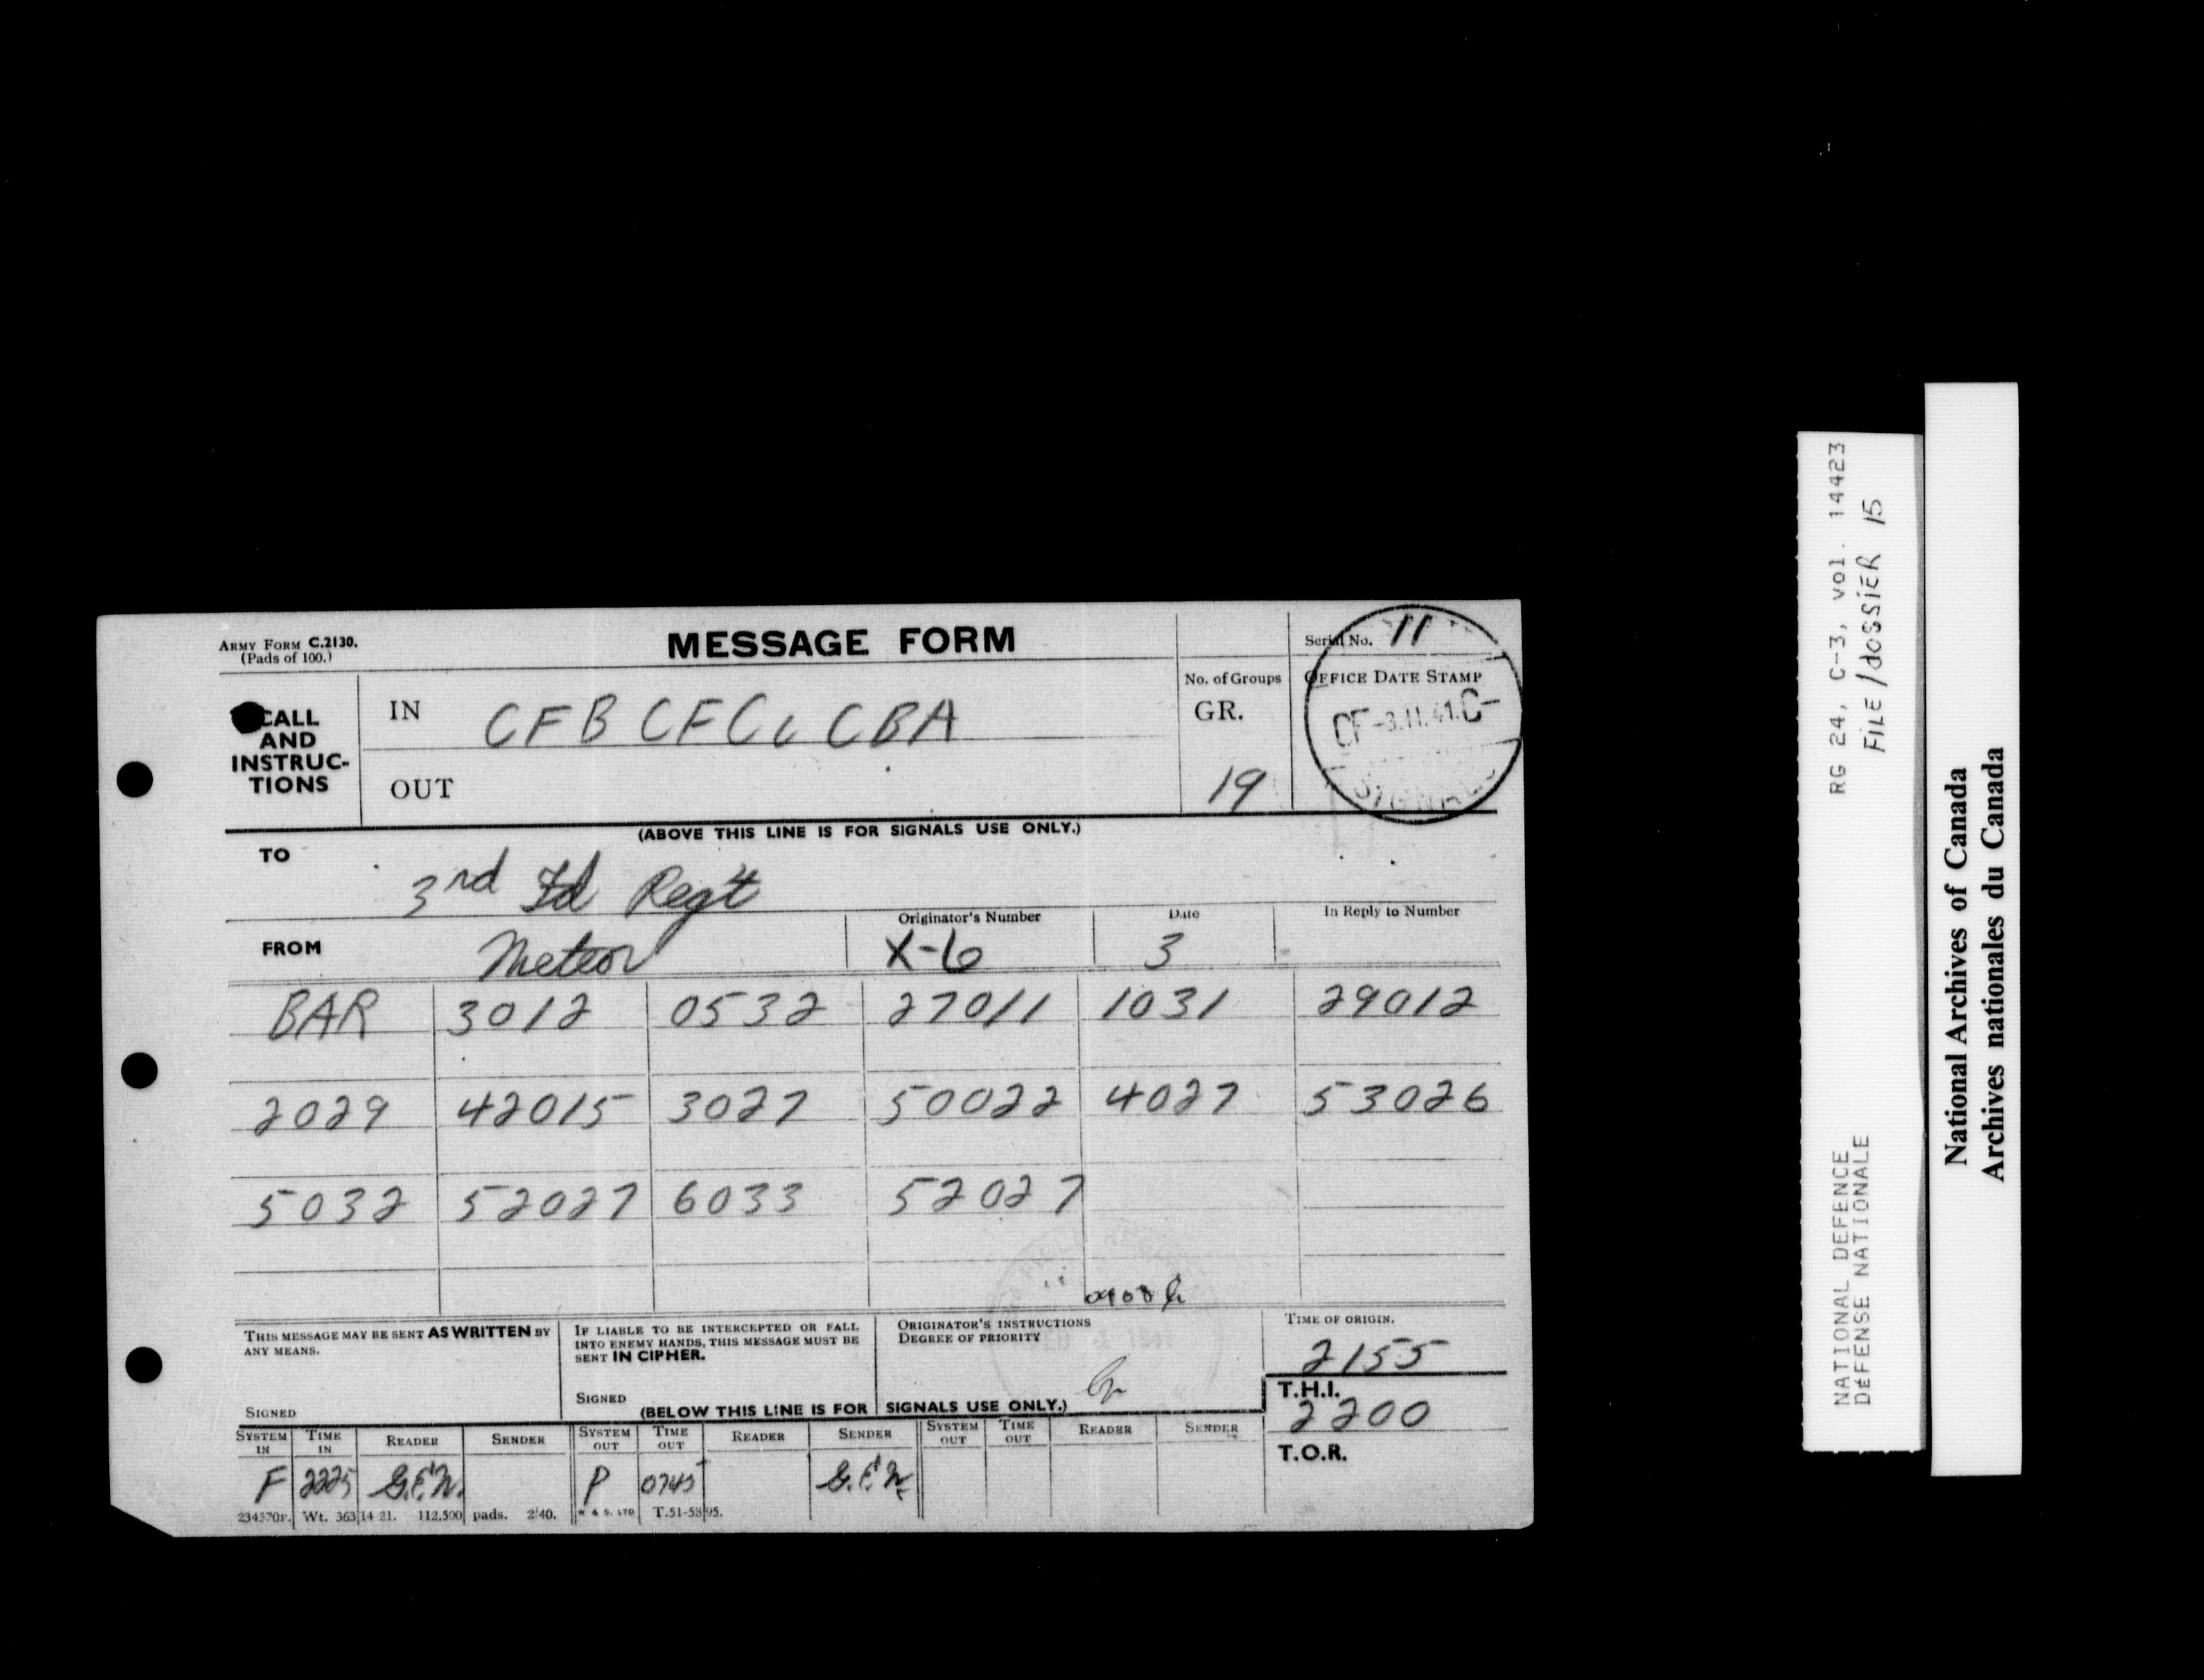 ARMY FORM C.2130.
(Pads of 100.)
MESSAGE FORM
Serial No. 11
CALL
AND
INSTRUC-
TIONS
IN CFB CFC CBA
OUT
No. of Groups
GR.
19
OFFICE DATE STAMP
CF -3.11.41.C-
SIGNALS
(ABOVE THIS LINE IS FOR SIGNALS USE ONLY.)
TO
3rd Fd Reg't
FROM Meteor
Originator's Number
X-6
Date
3
In Reply to Number
BAR 3012 0532 27011 1031 29012
2029 42015 3027 50022 4027 53026
5032 52027 6033 52027
THIS MESSAGE MAY BE SENT AS WRITTEN BY
ANY MEANS.
SIGNED
IF LIABLE TO BE INTERCEPTED OR FALL
INTO ENEMY HANDS, THIS MESSAGE MUST BE
SENT IN CIPHER.
SIGNED
ORIGINATOR'S INSTRUCTIONS
DEGREE OF PRIORITY
TIME OF ORIGIN.
2155
T.H.I.
2200
T.O.R.
(BELOW THIS LINE IS FOR SIGNALS USE ONLY.)
SYSTEM IN TIME IN READER SENDER SYSTEM OUT TIME OUT READER SENDER SYSTEM OUT TIME OUT READER SENDER
F 2225 G.E.N. P 0745 G.E.N.
234370F. Wt. 363 14 21. 112,500 pads. 2/40. W & S. LTD T.51-5895.
RG 24, C-3, vol. 14423
FILE/dossier 15
NATIONAL DEFENCE
DÉFENSE NATIONALE
National Archives of Canada
Archives nationales du Canada